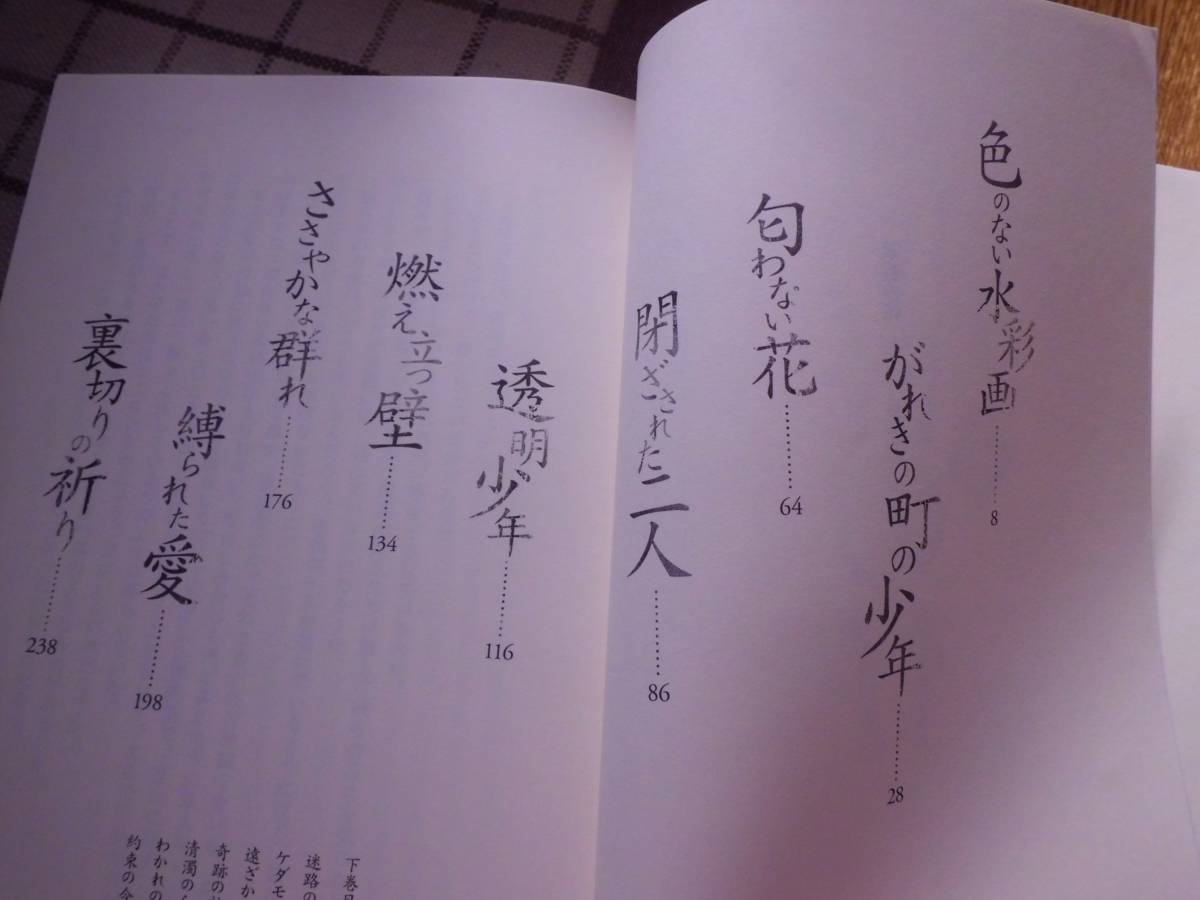 色のない水彩画…………8
がれきの町の少年…………28
匂わない花…………64
閉ざされた二人…………86
透明少年…………116
燃え立つ壁…………134
ささやかな群れ…………176
縛られた愛…………198
裏切りの祈り…………238
下巻
迷路の
ケダモ
遠ざか
奇跡の
清濁の
わかれの
約束の